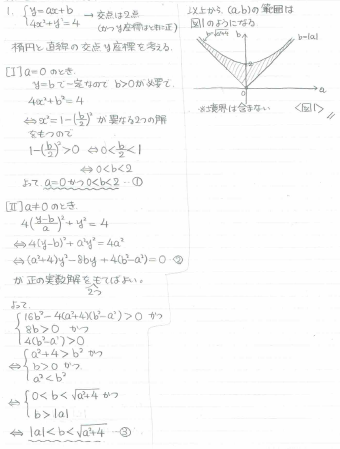 1. { y=ax+b
4x²+y²=4 → 交点は2点
(かつy座標はともに正)
楕円と直線の交点y座標を考える.
[I] a=0 のとき.
y=bで一定なので b>0が必要で.
4x²+b²=4
⇔ x²=1-(b/2)² が異なる2つの解
をもつので
1-(b/2)²>0 ⇔ 0<b/2<1
⇔ 0<b<2
よって a=0かつ0<b<2 …①
[II] a≠0 のとき.
4((y-b)/a)²+y²=4
⇔ 4(y-b)²+a²y²=4a²
⇔ (a²+4)y²-8by+4(b²-a²)=0 …②
が正の実数解をもてばよい。
2つ
よって.
{ 16b²-4(a²+4)(b²-a²)>0 かつ
8b>0 かつ
4(b²-a²)>0
⇔ { a²+4>b² かつ
b>0 かつ
a²<b²
⇔ { 0<b<√(a²+4) かつ
b>|a|
⇔ |a|<b<√(a²+4) …③
以上から (a,b)の範囲は
図1のようになる.
b=√(a²+4)
b
b=|a|
2
0
a
※境界は含まない
<図1>